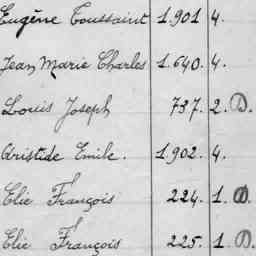 Eugène Toussaint 1.901 4.
Jean Marie Charles 1.640. 4.
Louis Joseph 737. 2. D.
Aristide Emile. 1.902. 4.
Elie François 224. 1. D.
Elie François 225. 1. D.